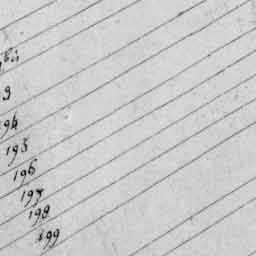 bis
9
194
195
196
197
198
199